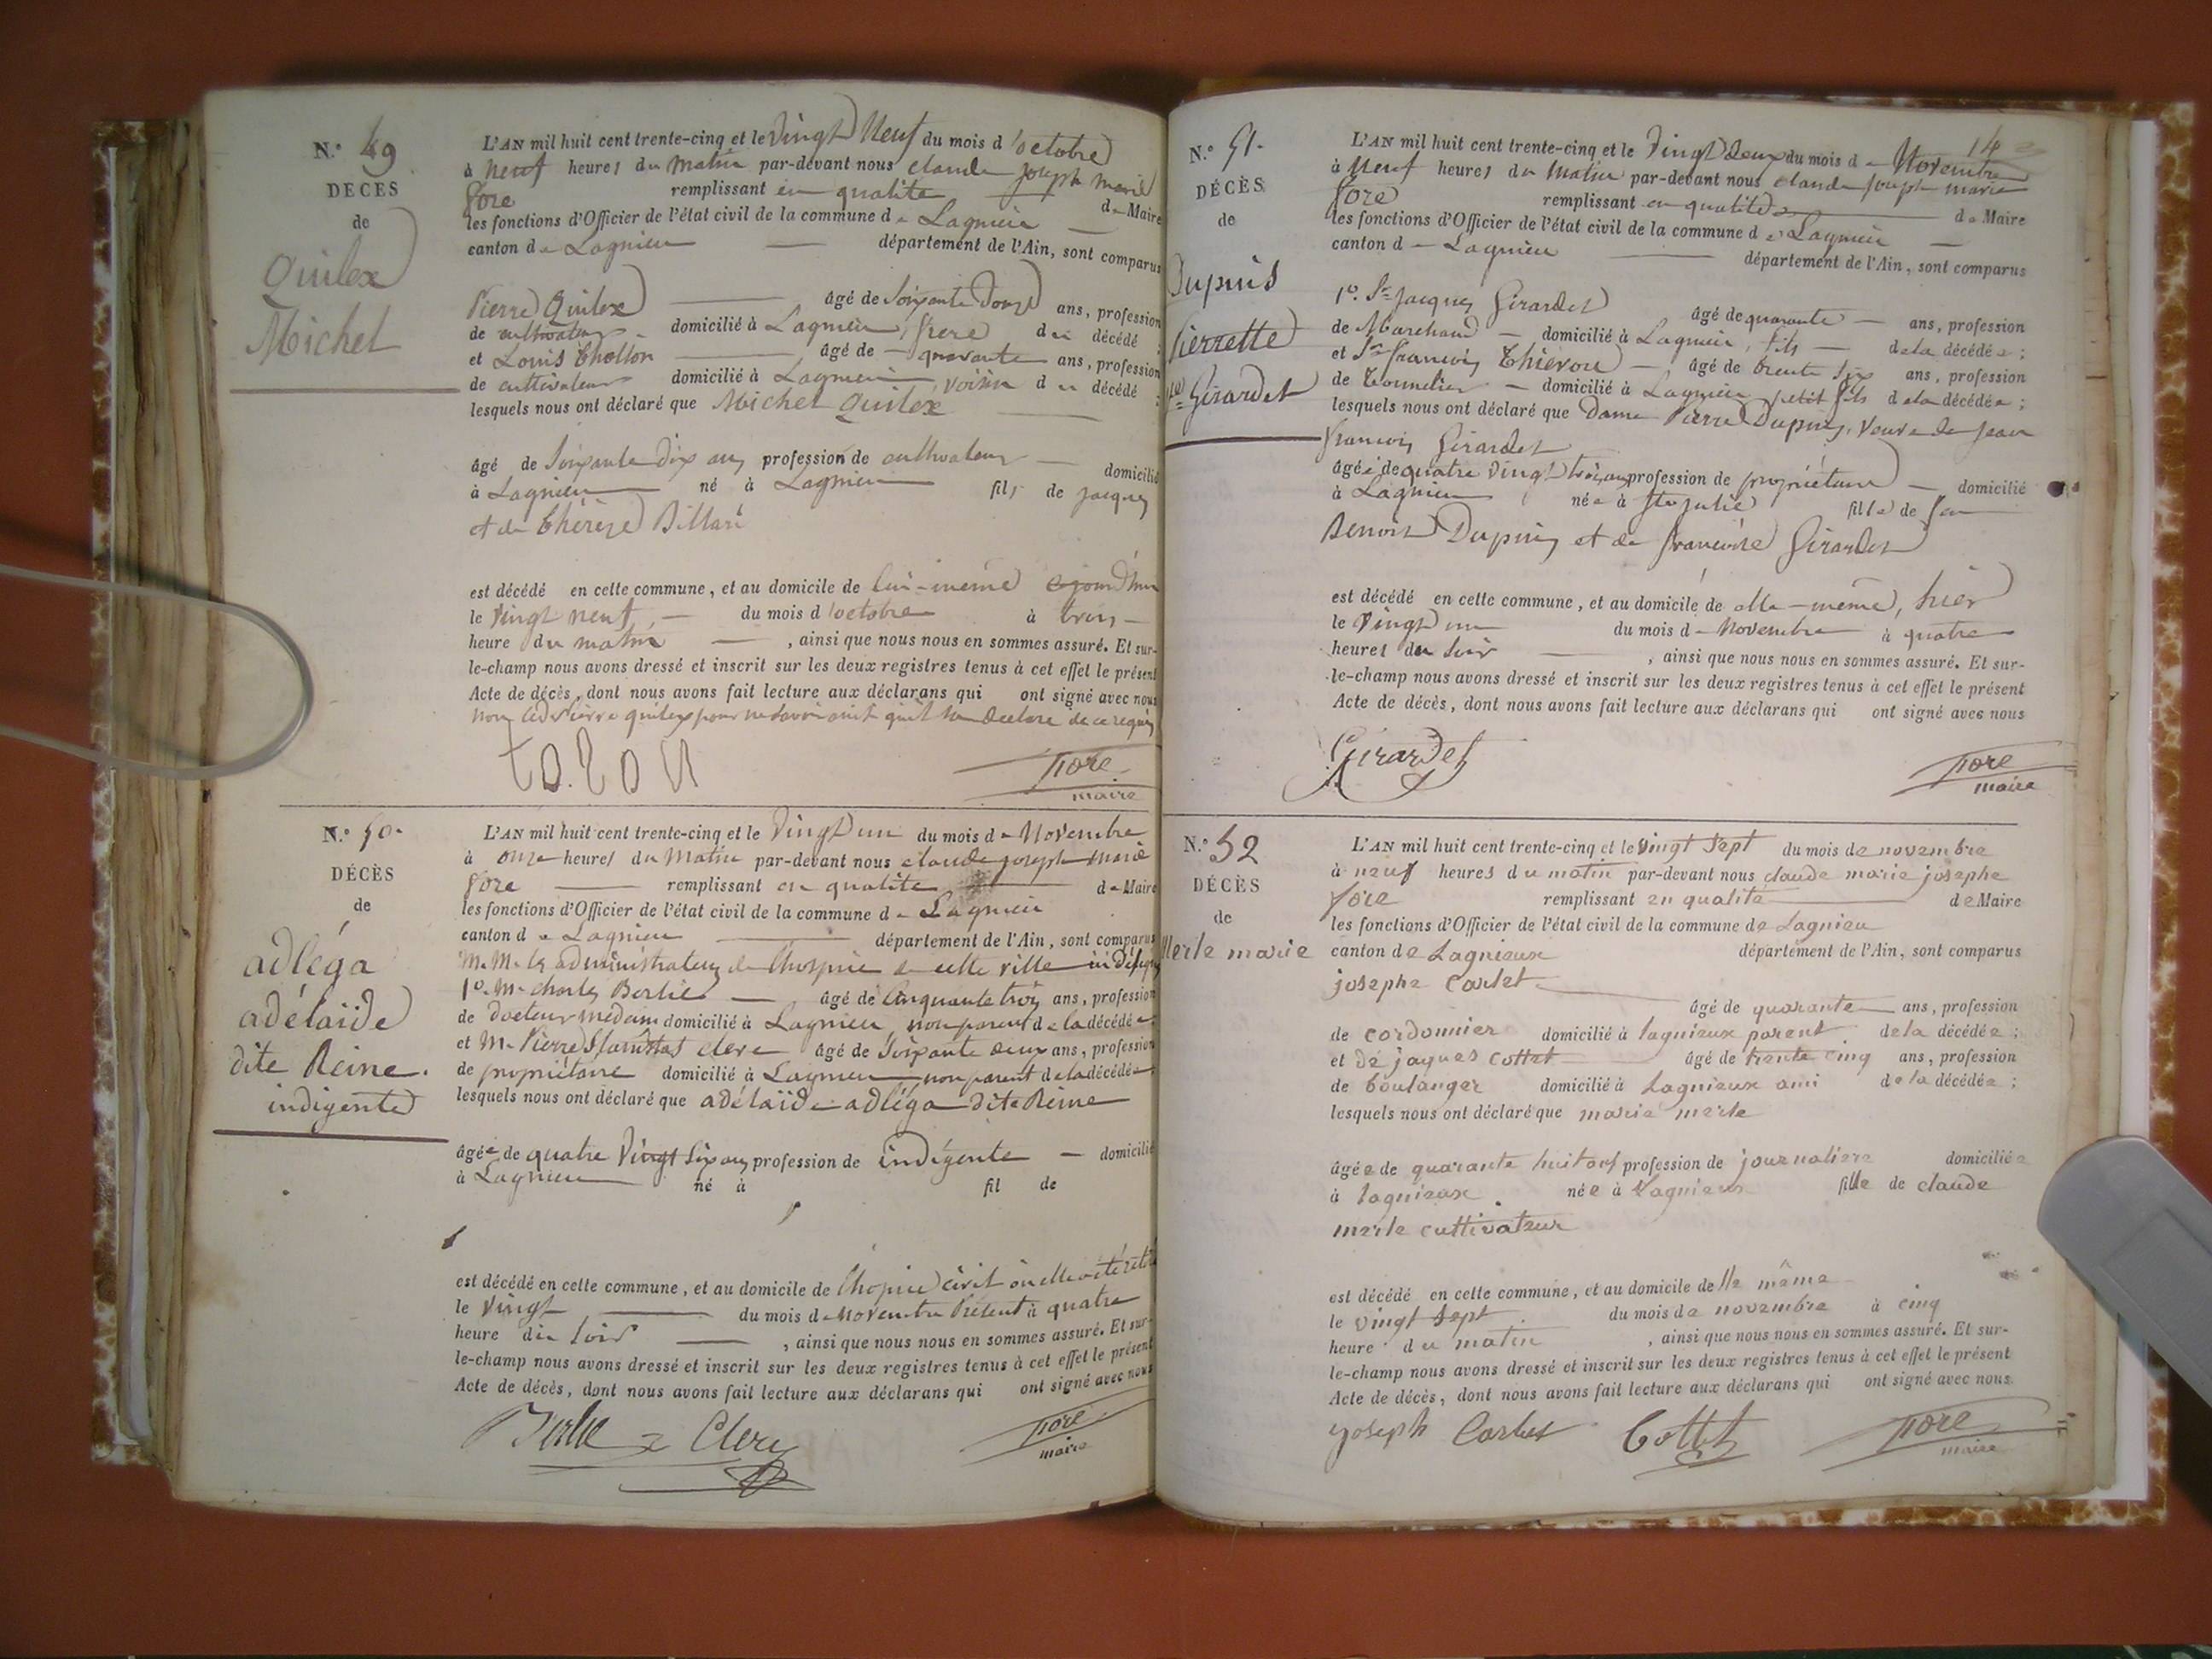 N.º 49
DÉCÈS
de
Quilex
Michel
L'AN mil huit cent trente-cinq et le Vingt Neuf du mois d'octobre
à neuf heures du matin par-devant nous claude joseph marie
fore remplissant en qualité de Maire
les fonctions d'Officier de l'état civil de la commune de Lagnieu
canton de Lagnieu département de l'Ain, sont comparus
Pierre Quilex âgé de Soixante Douze ans, profession
de cultivateur domicilié à Lagnieu, frere du décédé ;
et Louis Thollon âgé de quarante ans, profession
de cultivateur domicilié à Lagnieu voisin du décédé ;
lesquels nous ont déclaré que Michel Quilex
âgé de Soixante Dix ans profession de cultivateur domicilié
à Lagnieu né à Lagnieu fils de jacques
et de thérèze Billard
est décédé en cette commune, et au domicile de lui-même cejourd'hui
le vingt neuf du mois d'octobre à trois
heure du matin, ainsi que nous nous en sommes assuré. Et sur-
le-champ nous avons dressé et inscrit sur les deux registres tenus à cet effet le présent
Acte de décès, dont nous avons fait lecture aux déclarans qui ont signé avec nous
non led. Pierre quilex pour ne savoir ainsi qu'il l'a declaré de ce requis
fore
maire
N.º 50.
DÉCÈS
de
adléga
adélaïde
dite Reine.
indigente
L'AN mil huit cent trente-cinq et le Vingt un du mois de Novembre
à onze heures du Matin par-devant nous claude joseph marie
fore remplissant en qualité de Maire
les fonctions d'Officier de l'état civil de la commune de Lagnieu
canton de Lagnieu département de l'Ain, sont comparus
M.M. les administrateurs de l'hospice de cette ville
1º. M. charles Berlie âgé de Cinquante trois ans, profession
de docteur médecin domicilié à Lagnieu, non parent de la décédée ;
et M. Pierre Stanislas clerc âgé de Soixante deux ans, profession
de propriétaire domicilié à Lagnieu non parent de la décédée ;
lesquels nous ont déclaré que adélaïde adléga dite Reine
âgée de quatre Vingt Six ans profession de indigente domicilié
à Lagnieu né à fil de
est décédé en cette commune, et au domicile de l'hopice civil où elle a été
le Vingt du mois de novembre Présent à quatre
heure du soir, ainsi que nous nous en sommes assuré. Et sur-
le-champ nous avons dressé et inscrit sur les deux registres tenus à cet effet le présent
Acte de décès, dont nous avons fait lecture aux déclarans qui ont signé avec nous
Berlie Clerc
fore
maire
14
N.º 51.
DÉCÈS
de
Dupuis
Pierrette
Ve Girardet
L'AN mil huit cent trente-cinq et le Vingt Deux du mois de Novembre
à Neuf heures du Matin par-devant nous claude joseph marie
fore remplissant en qualité de Maire
les fonctions d'Officier de l'état civil de la commune de Lagnieu
canton de Lagnieu département de l'Ain, sont comparus
1º. Sr Jacques Girardet âgé de quarante ans, profession
de Marchand domicilié à Lagnieu, fils de la décédée ;
et Sr francois Thievon âgé de trente Six ans, profession
de Tonnelier domicilié à Lagnieu petit fils de la décédée ;
lesquels nous ont déclaré que Dame Pierre Dupuis, veuve de jean
francois Girardet
âgée de quatre Vingt trois ans profession de propriétaire domicilié
à Lagnieu née à Ste julie fille de feu
Benoit Dupuis et de francoise Girardet
est décédé en cette commune, et au domicile de elle-même, hier
le Vingt un du mois de Novembre à quatre
heures du Soir, ainsi que nous nous en sommes assuré. Et sur-
le-champ nous avons dressé et inscrit sur les deux registres tenus à cet effet le présent
Acte de décès, dont nous avons fait lecture aux déclarans qui ont signé avec nous
Girardet
fore
maire
N.º 52
DÉCÈS
de
Merle marie
L'AN mil huit cent trente-cinq et le vingt sept du mois de novembre
à neuf heures du matin par-devant nous claude marie josephe
fore remplissant en qualité de Maire
les fonctions d'Officier de l'état civil de la commune de Lagnieu
canton de Lagnieux département de l'Ain, sont comparus
josephe Carlet âgé de quarante ans, profession
de cordonnier domicilié à lagnieux parent de la décédée ;
et de jaques cottet âgé de trente cinq ans, profession
de boulanger domicilié à Lagnieux ami de la décédée ;
lesquels nous ont déclaré que marie merle
âgée de quarante huit ans profession de journaliere domiciliée
à lagnieux née à Lagnieux fille de claude
merle cultivateur
est décédé en cette commune, et au domicile de lle même
le vingt sept du mois de novembre à cinq
heure du matin, ainsi que nous nous en sommes assuré. Et sur-
le-champ nous avons dressé et inscrit sur les deux registres tenus à cet effet le présent
Acte de décès, dont nous avons fait lecture aux déclarans qui ont signé avec nous
joseph Carlet Cottet fore
maire